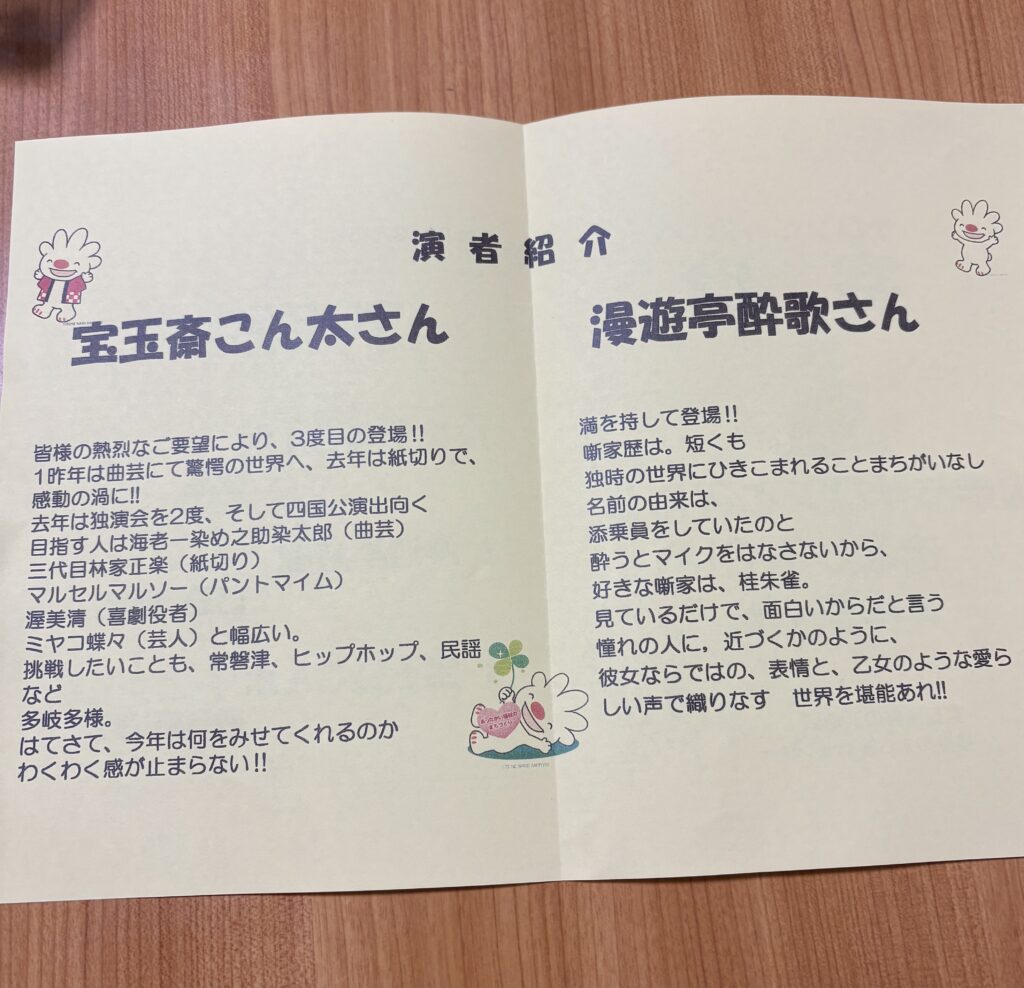 演者紹介
宝玉斎こん太さん
皆様の熱烈なご要望により、3度目の登場!!
1昨年は曲芸にて驚愕の世界へ、去年は紙切りで、
感動の渦に!!
去年は独演会を2度、そして四国公演出向く
目指す人は海老一染め之助染太郎（曲芸）
三代目林家正楽（紙切り）
マルセルマルソー（パントマイム）
渥美清（喜劇役者）
ミヤコ蝶々（芸人）と幅広い。
挑戦したいことも、常磐津、ヒップホップ、民謡
など
多岐多様。
はてさて、今年は何をみせてくれるのか
わくわく感が止まらない!!
漫遊亭酔歌さん
満を持して登場!!
噺家歴は。短くも
独時の世界にひきこまれることまちがいなし
名前の由来は、
添乗員をしていたのと
酔うとマイクをはなさないから、
好きな噺家は、桂朱雀。
見ているだけで、面白いからだと言う
憧れの人に，近づくかのように、
彼女ならではの、表情と、乙女のような愛ら
しい声で織りなす　世界を堪能あれ!!
あったかい福祉の
まちづくり